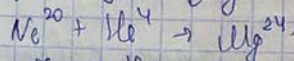 Ne²⁰ + He⁴ → Mg²⁴